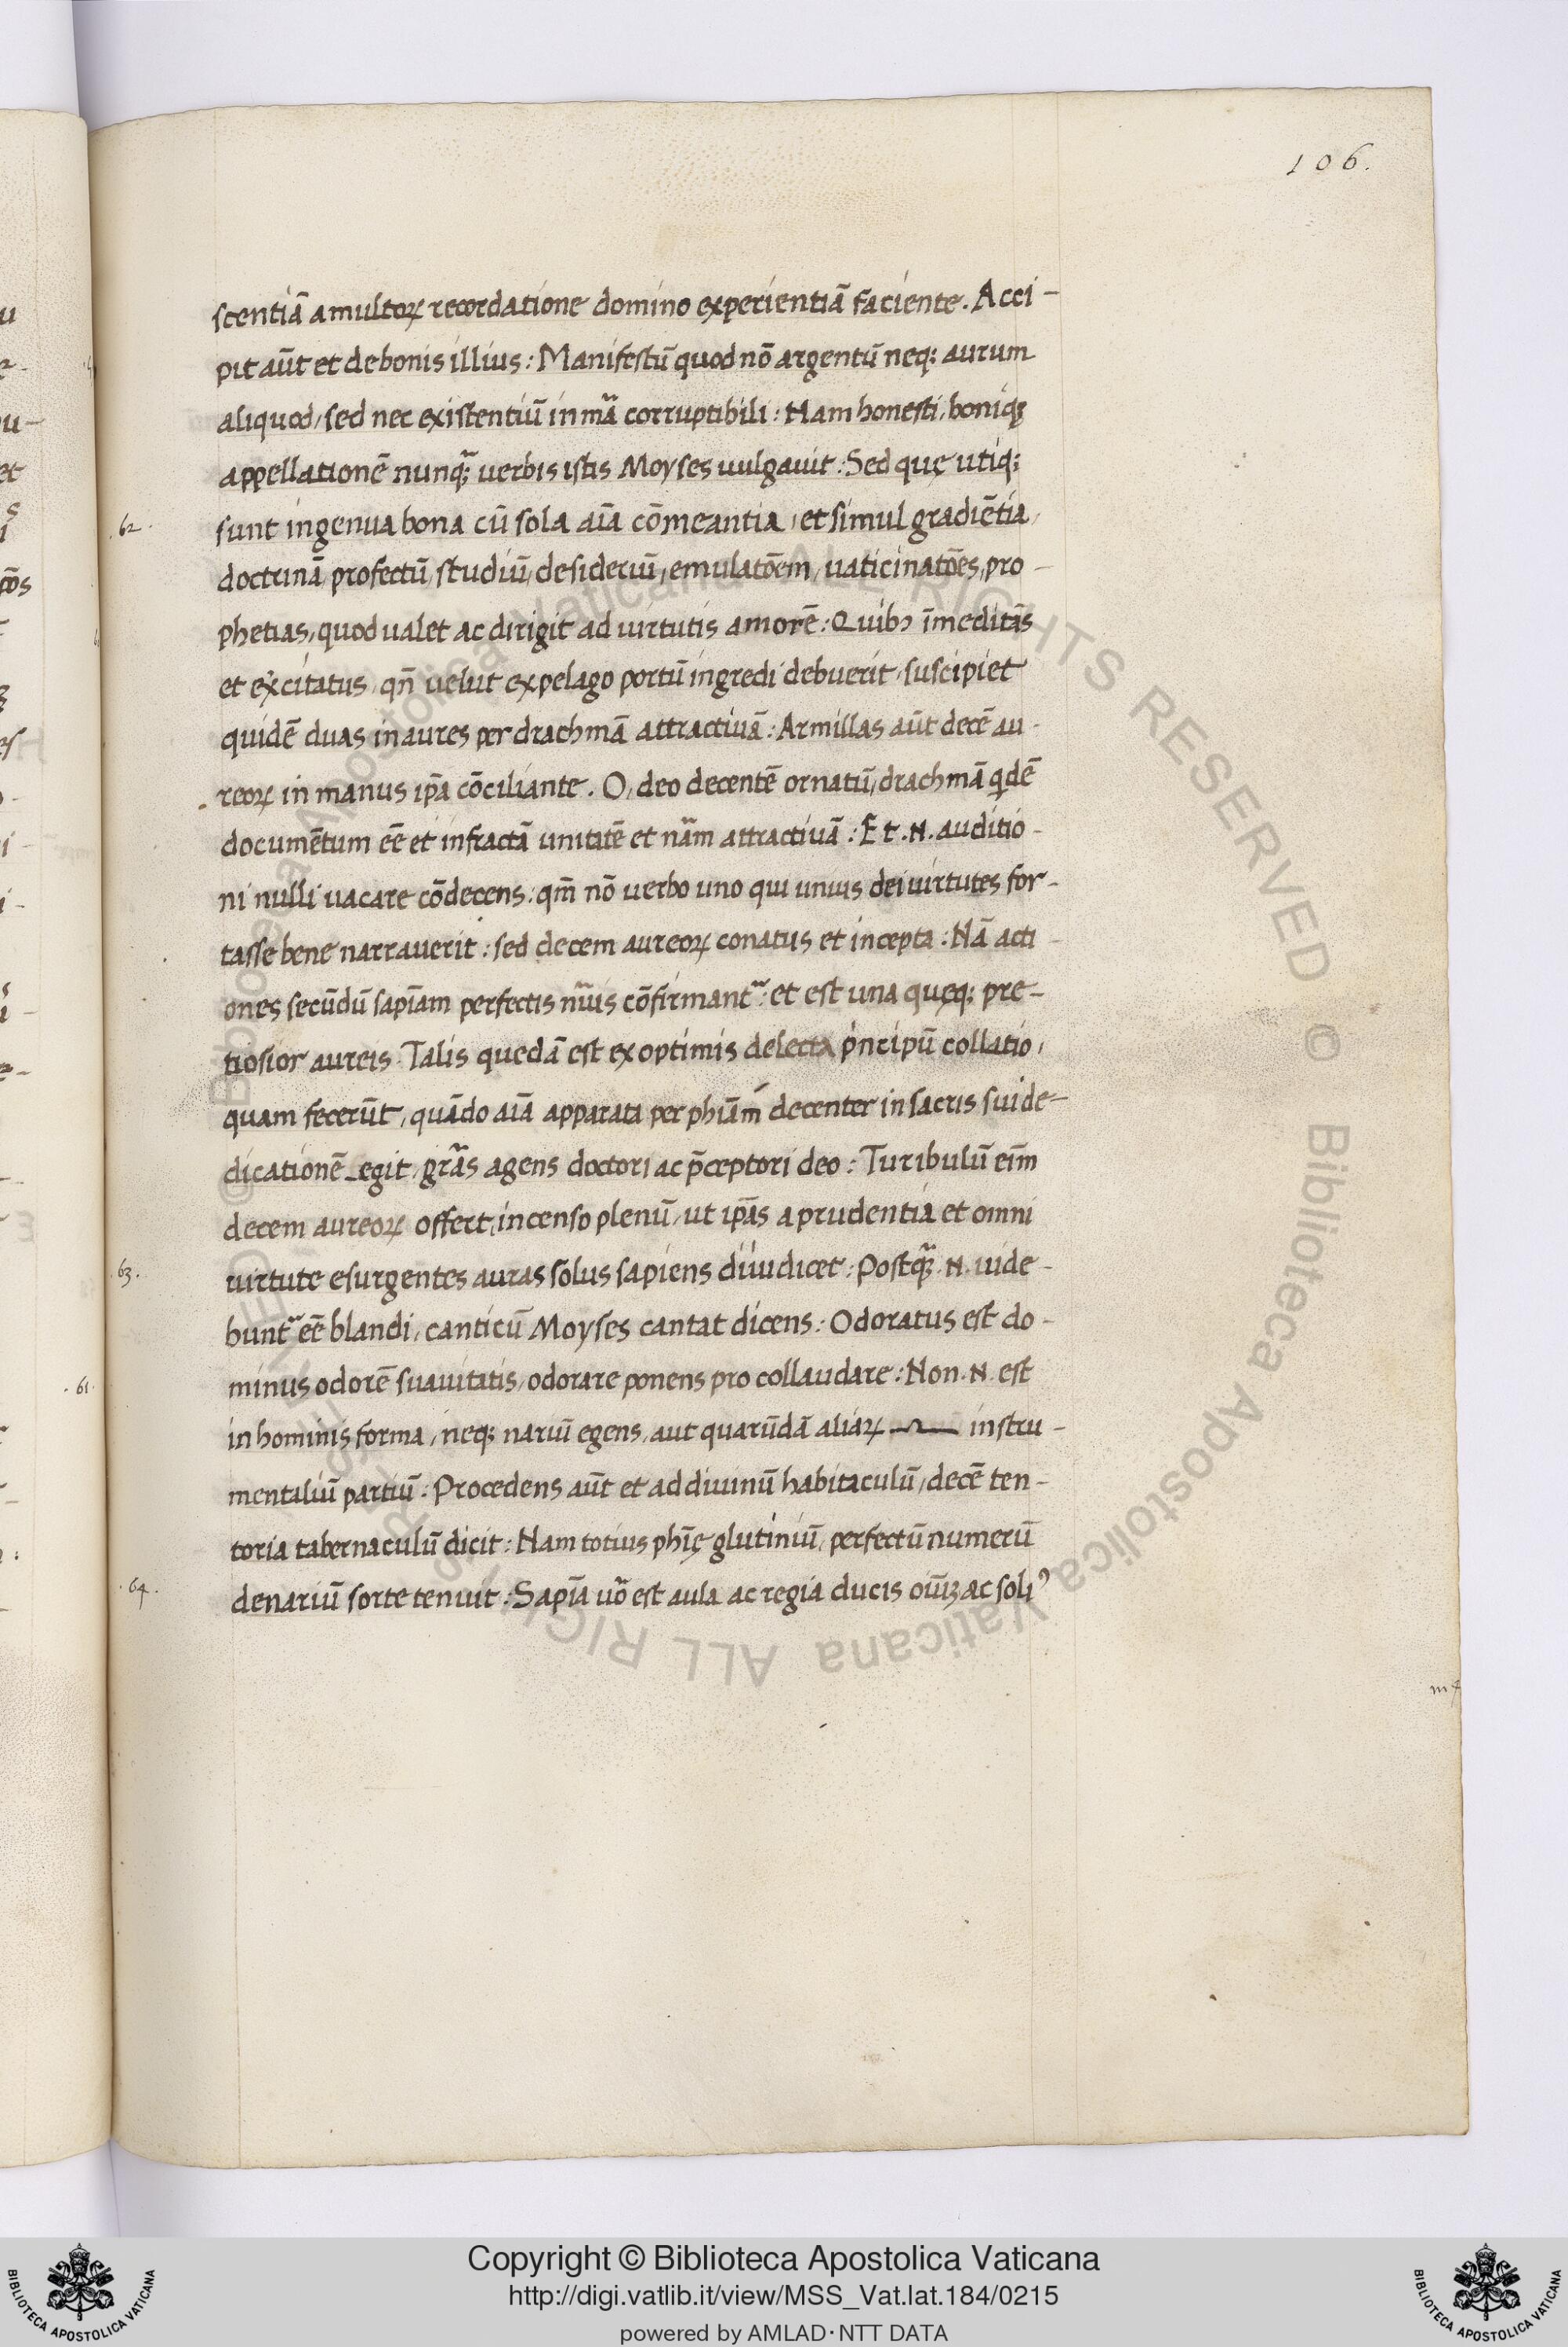 106.
scentiā a multoꝝ recordatione domino experientiā faciente. Acci-
pit aūt et de bonis illius: Manifestū quod nō argentū neq; aurum
aliquod, sed nec existentiū in mãa corruptibili: Nam honesti, boniqꝫ
appellationē nunq̃; verbis istis Moyses uulgauit: Sed quę utiq;
62.
sunt ingenua bona cū sola aīa cōmeantia, et simul gradiētia,
doctrinā, profectū, studiū, desideriū, emulatōem, uaticinatōes, pro-
phetias, quod ualet ac dirigit ad uirtutis amorē: Quibꝰ īmeditās
et excitatus, qñ uelut ex pelago portū ingredi debuerit, suscipiet
quidē duas in aures per drachmā attractiuā: Armillas aūt decē au-
reoꝝ in manus ip̄a cōciliante. O, deo decentē ornatū, drachmā qdē
documētum eē et infractā unitatē et nãm attractiuā: Et .N. auditio-
ni nulli uacare cōdecens: qm̄ nō uerbo uno qui unius dei uirtutes for-
tasse bene narrauerit: sed decem aureoꝝ conatus et incepta: Nā acti-
ones secūdū sapīam perfectis nũis cōfirmantᵃ: et est una quęq; pre-
tiosior aureis. Talis quedā est ex optimis delecta pͥncipū collatio,
quam fecerūt, quādo aīa apparata per phīam decenter in sacris sui de-
dicationē egit, grãs agens doctori ac p̄ceptori deo: Turibulū eīm
decem aureoꝝ offert, incenso plenū, ut ip̄as a prudentia et omni
63.
uirtute esurgentes auras solus sapiens diiudicet: Postq̃; .N. uide-
buntᵃ eē blandi, canticū Moyses cantat dicens: Odoratus est do-
61.
minus odorē suauitatis, odorare ponens pro collaudare: Non .N. est
in hominis forma, neq; nariū egens, aut quarūdā aliaꝝ instru-
mentaliū partiū: Procedens aūt et ad diuinū habitaculū, decē ten-
toria tabernaculū dicit: Nam totius phīę glutiniū, perfectū numerū
64.
denariū sorte tenuit: Sapīa uõ est aula ac regia ducis oīuꝫ ac soliꝰ
Copyright © Biblioteca Apostolica Vaticana
http://digi.vatlib.it/view/MSS_Vat.lat.184/0215
powered by AMLAD·NTT DATA